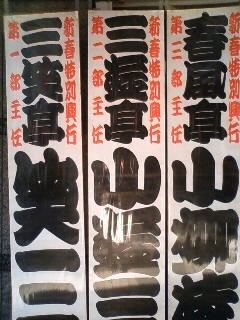 新春特別興行
第二部主任
春風亭小柳
新春特別興行
第二部主任
三遊亭小遊三
新春特別興行
第二部主任
三笑亭笑三